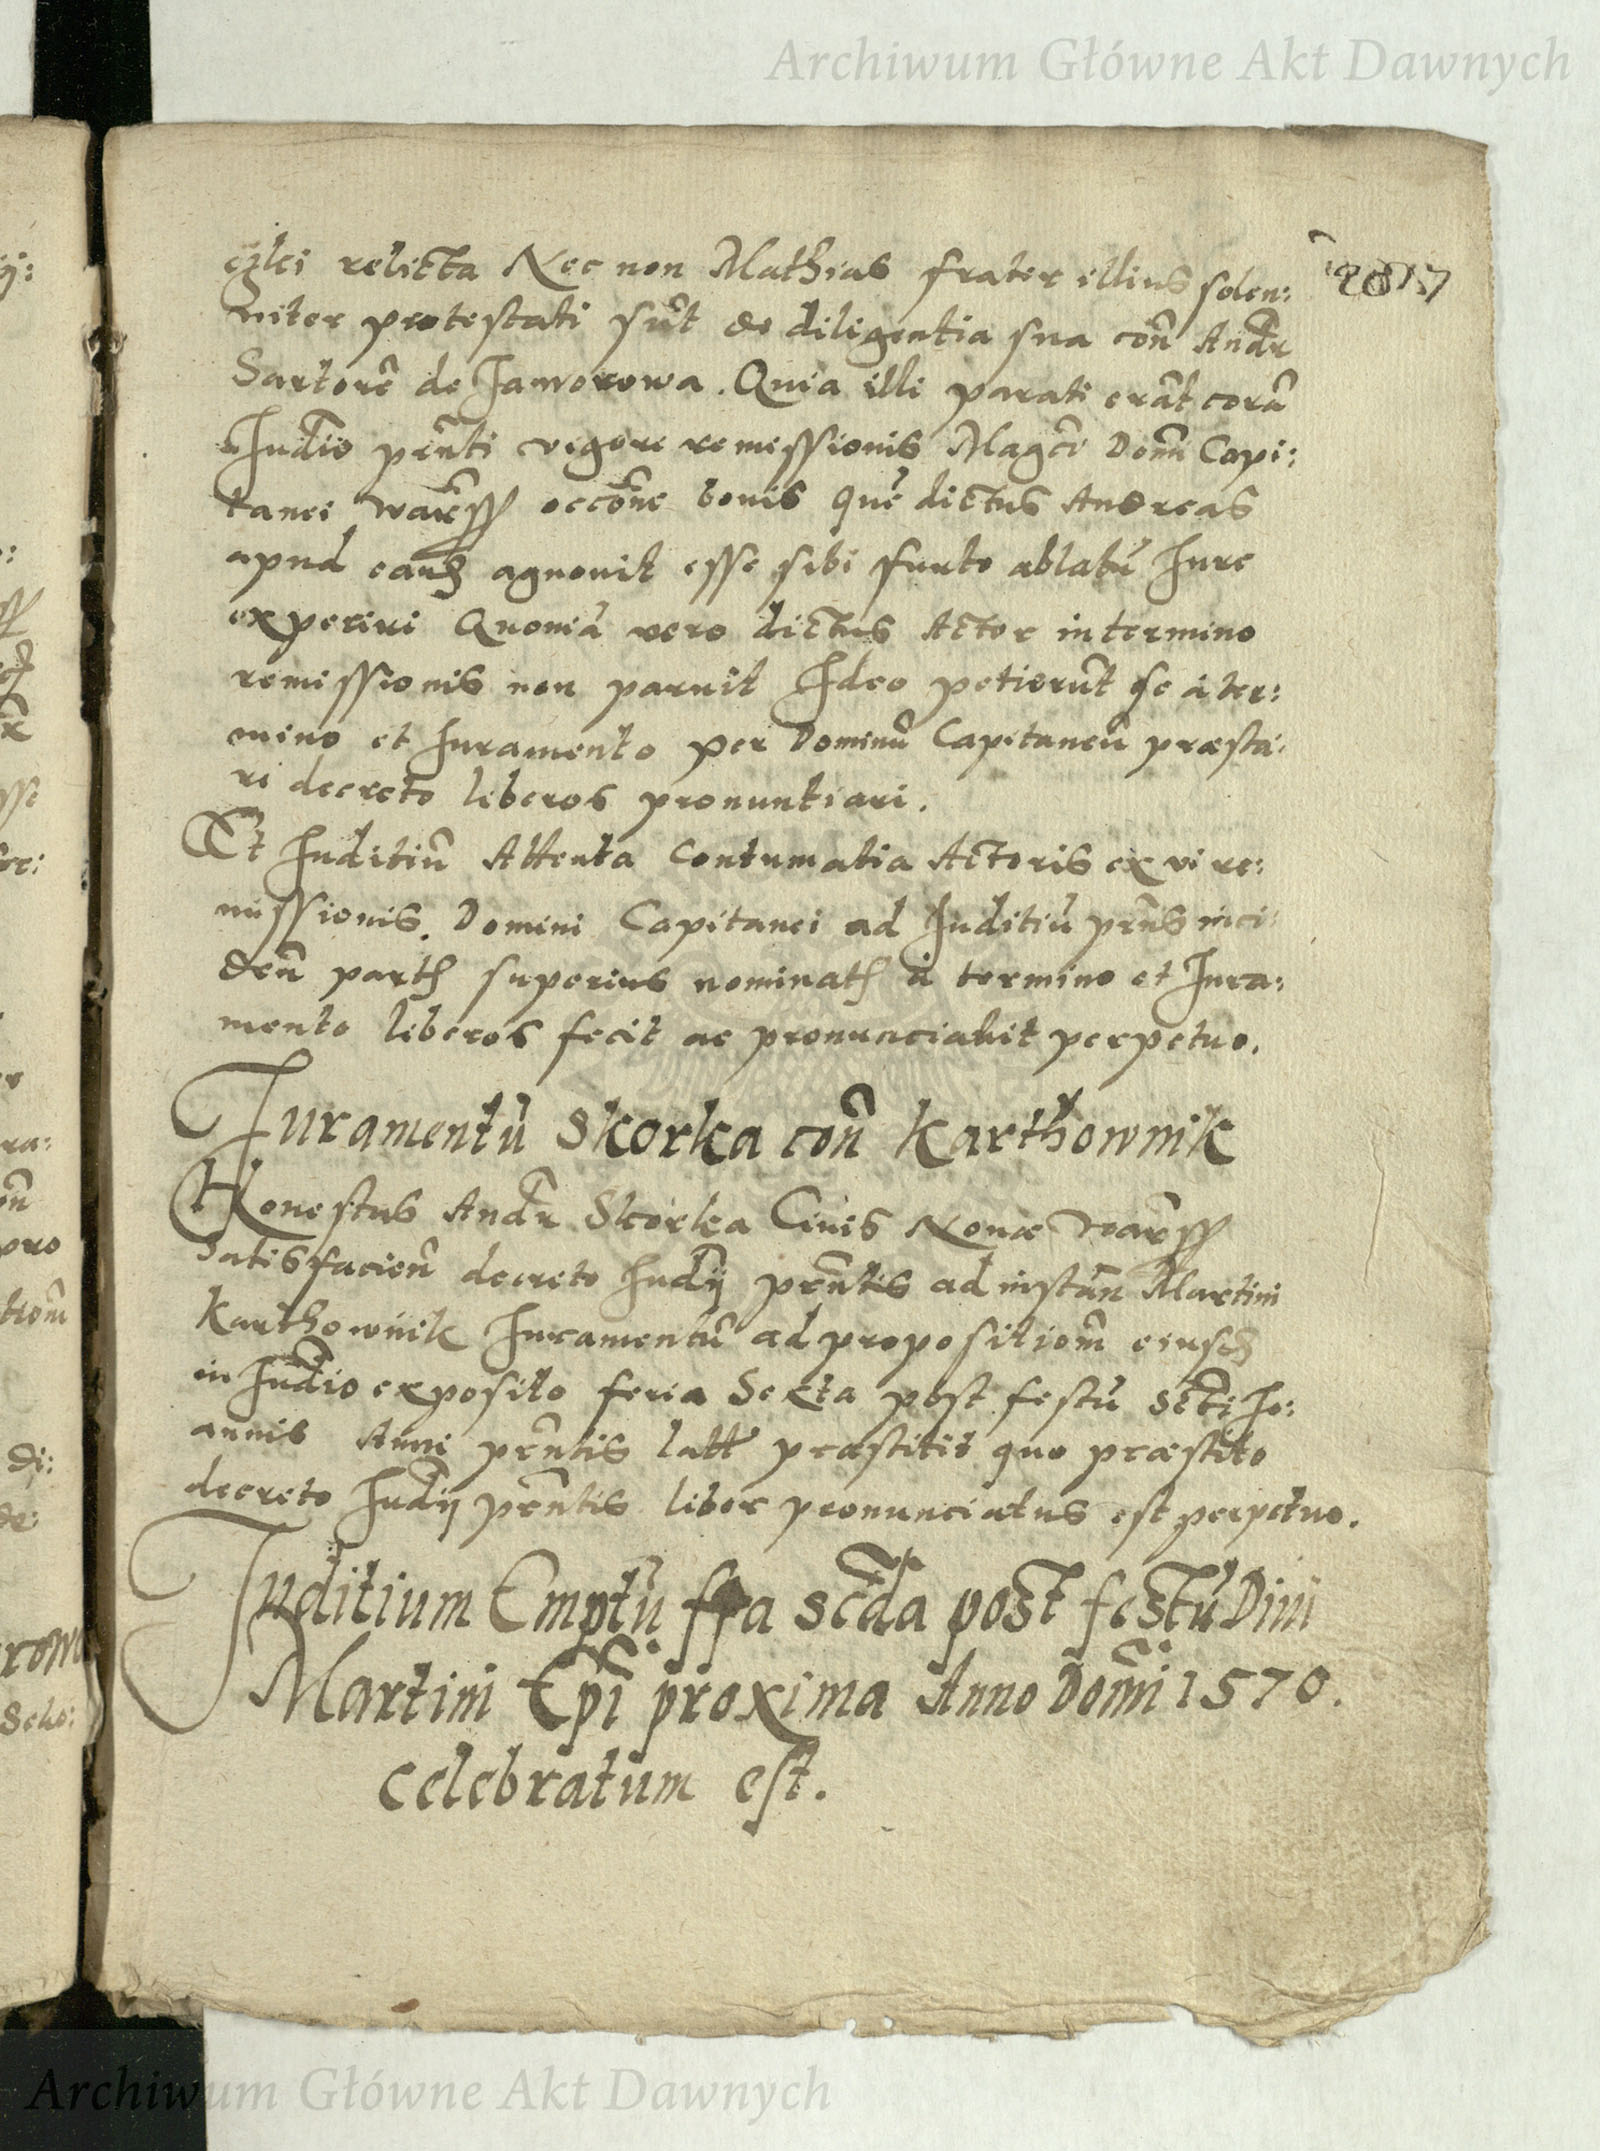 Archiwum Główne Akt Dawnych
relicta Nec non Mathias frater illius solen:
niter protestati sūt de diligentia sua con̄ Andr̄
Sartorē de Jaworowa. Quia illi parati erāt corā
Iudīo pn̄ti vigore remissionis Magci Domī Capi:
tanei Warss̄ occōne bovis quē dictus Andreas
apud agnovit esse sibi furto ablatū Iure
experiri Quoniā vero dictus Actor in termino
remissionis non paruit Ideo petierūt se a ter:
mino et Iuramento per Dominū Capitaneū præsta:
ri decreto liberos pronuntiari.
Et Iuditiū Attenta Contumatia Actoris ex vi re:
missionis Domini Capitanei ad Iuditiū pn̄s inci:
den̄ superius a termino et Iura:
mento liberos fecit ac pronunciavit perpetuo.
Iuramentū Skorka con̄ Karthownik
Honestus Andr̄ Skorka Civis Novæ Warss̄
Satisfacien̄ decreto Iudij pn̄tis ad instān Martini
Karthownik Iuramentū ad propositiom̄
in Iudīo exposito feria Sexta post festū Scti Jo:
annis Anni pn̄tis præstitit quo præstito
decreto Iudij pn̄tis liber pronunciatus est perpetuo.
Iuditium Emptū ffa scd̄a post festū Divi
Martini Ep̄i proxima Anno Domī 1570.
celebratum est.
Archiwum Główne Akt Dawnych